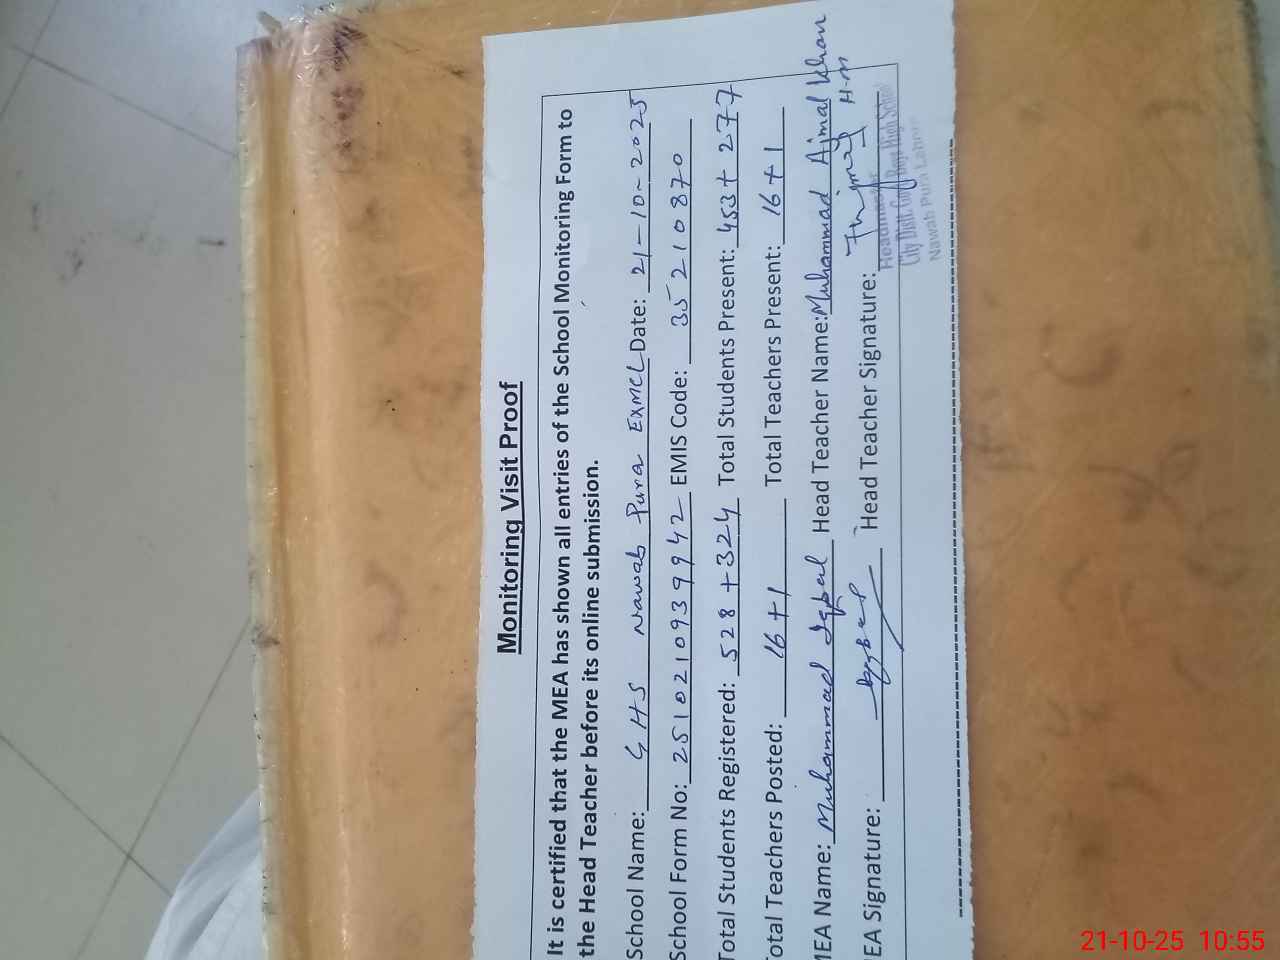 Monitoring Visit Proof
It is certified that the MEA has shown all entries of the School Monitoring Form to
the Head Teacher before its online submission.
School Name: GHS Nawab Pura EXMCL Date: 21-10-2025
School Form No: 2510210939942 EMIS Code: 35210870
Total Students Registered: 528+324 Total Students Present: 453+277
Total Teachers Posted: 16+1 Total Teachers Present: 16+1
MEA Name: Muhammad Iqbal Head Teacher Name: Muhammad Ajmal Khan
H-m
MEA Signature: Head Teacher Signature:
Headmaster
City Distt. Govt. Boys High School
Nawab Pura Lahore
21-10-25 10:55